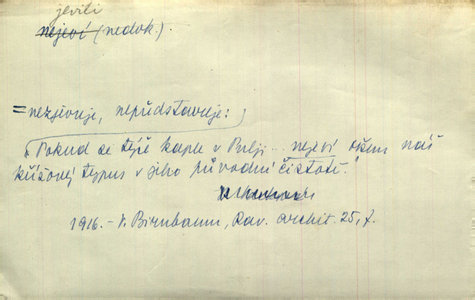 jeviti
nejeví (nedok.).
= nezjevuje, nepředstavuje:
„Pokud se týče kaple v Pulji... nejeví ovšem náš
křížový typus v jeho původní čistotě."
1916. – V. Birnbaum, Rav. archit. 25, 7.